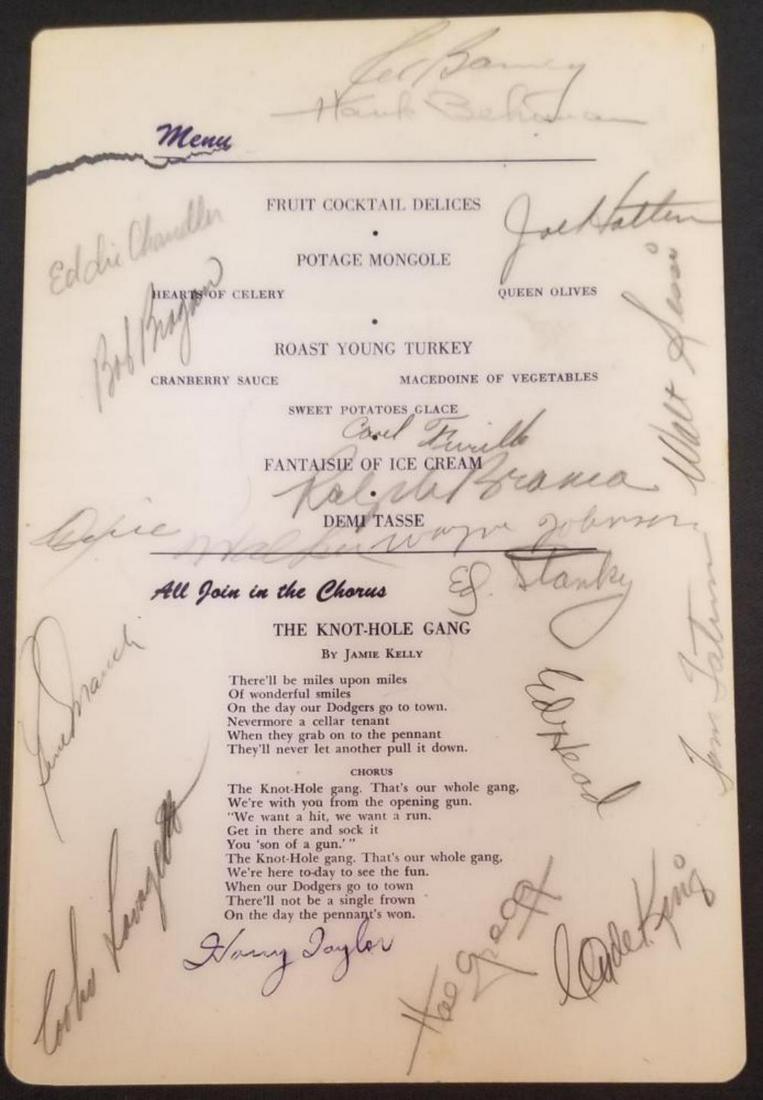 Hank Behrman
Menu
FRUIT COCKTAIL DELICES
Eddie Chandler
Joe Hatten
POTAGE MONGOLE
HEARTS OF CELERY
QUEEN OLIVES
Bob Bragan
Walt Sessi
ROAST YOUNG TURKEY
CRANBERRY SAUCE
MACEDOINE OF VEGETABLES
SWEET POTATOES GLACE
Carl Furillo
FANTAISIE OF ICE CREAM
Ralph Branca
DEMI TASSE
Johnson
Ed. Stanky
All Join in the Chorus
THE KNOT-HOLE GANG
BY JAMIE KELLY
Tom Tatum
Gene Mauch
There'll be miles upon miles
Of wonderful smiles
On the day our Dodgers go to town.
Nevermore a cellar tenant
When they grab on to the pennant
They'll never let another pull it down.
Ed Head
CHORUS
The Knot-Hole gang. That's our whole gang,
We're with you from the opening gun.
"We want a hit, we want a run,
Get in there and sock it
You 'son of a gun.'"
The Knot-Hole gang. That's our whole gang,
We're here to-day to see the fun.
When our Dodgers go to town
There'll not be a single frown
On the day the pennant's won.
Cookie Lavagetto
Harry Taylor
Hal Gregg
Clyde King